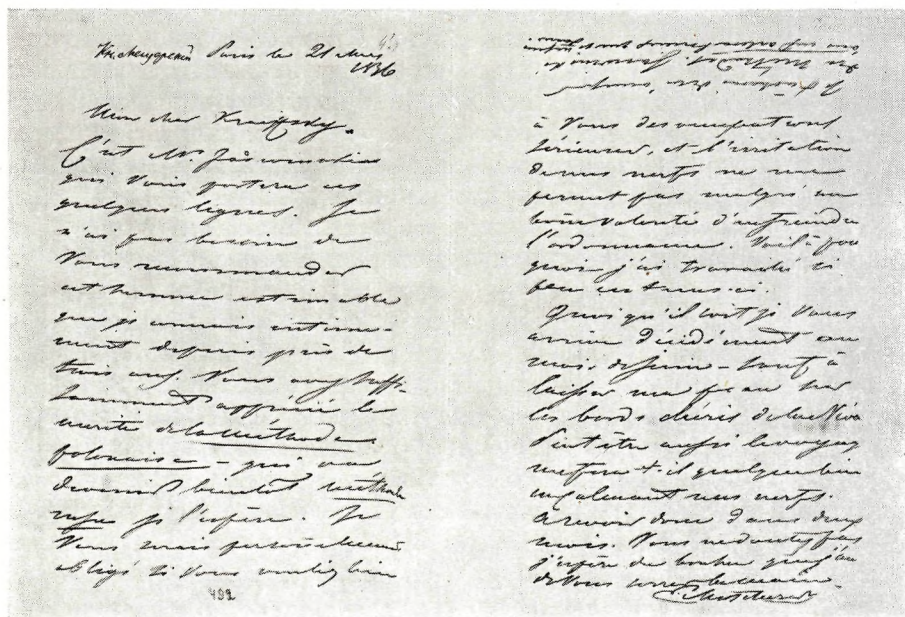 Кн. Мещерский Paris le 21 Mars
1836
Mon cher Kraeffsky.
C'est Mr. Jaswinski
qui Vous portera ces
quelques lignes. Je
n'ai pas besoin de
Vous recommander
cet homme estimable
que je connais intime-
ment depuis près de
trois ans. Vous avez suffi-
samment apprécié le
mérite de la méthode
polonaise - qui va
devenir bientôt méthode
russe je l'espère. Je
Vous serais personnellement
obligé si Vous vouliez bien
492
à Vous des
sérieux, et l'irritation
de mes nerfs ne me
permet pas malgré ma
bonne volonté d'enfreindre
l'ordonnance. Voilà pour
quoi j'ai travaillé si
peu ces tems-ci.
Quoi qu'il soit je Vous
arrive décidément au
mois de juin - sauf à
laisser ma peau sur
les bords chéris de la Néva
Peut être aussi le voyage
me fera-t-il quelque bien
en calmant mes nerfs.
A revoir donc dans deux
mois. Vous ne doutez pas
j'espère du bonheur que j'au
de Vous serrer la main.